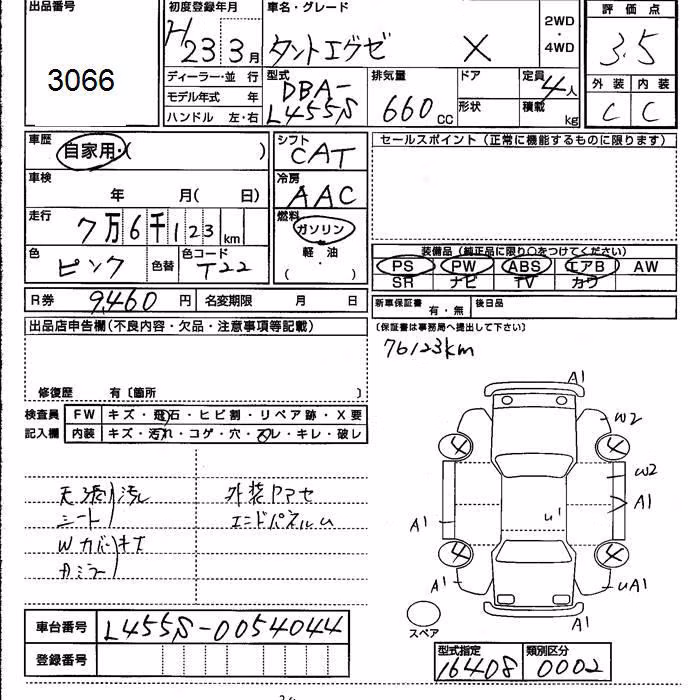 出品番号
3066
初度登録年月
H23 3月
車名・グレード
タントエグゼ X
2WD
・
4WD
評価点
3.5
外装 内装
C C
ディーラー・並 行
モデル年式 年
ハンドル 左・右
型式
DBA-
L455S
排気量
660 CC
ドア
形状
定員
4人
積載
kg
車歴
自家用・( )
車検
年 月( 日)
走行
7万6千123km
色
ピンク
色替
色コード
T22
シフト
CAT
冷房
AAC
燃料
ガソリン
軽・油
( ・ )
セールスポイント(正常に機能するものに限ります)
装備品(純正品に限り○をつけてください)
PS PW ABS エアB AW
SR ナビ TV カワ
R券 9,460 円 名変期限 月 日
新車保証書 有・無 後日品
(保証書は事務局へ提出して下さい)
76123km
出品店申告欄(不良内容・欠品・注意事項等記載)
修復歴 有〔箇所 〕
検査員
記入欄
FW キズ・飛石・ヒビ割・リペア跡・X要
内装 キズ・汚れ・コゲ・穴・スレ・キレ・破レ
天張り汚レ
シート
Wカバーキズ
外装クアセ
エンドパネルU
A1
W2
4 4
W2
A1
U1
A1
4 4
A1
UA1
A1
スペア
車台番号 L455S-0054044
登録番号
型式指定 類別区分
16408 0002